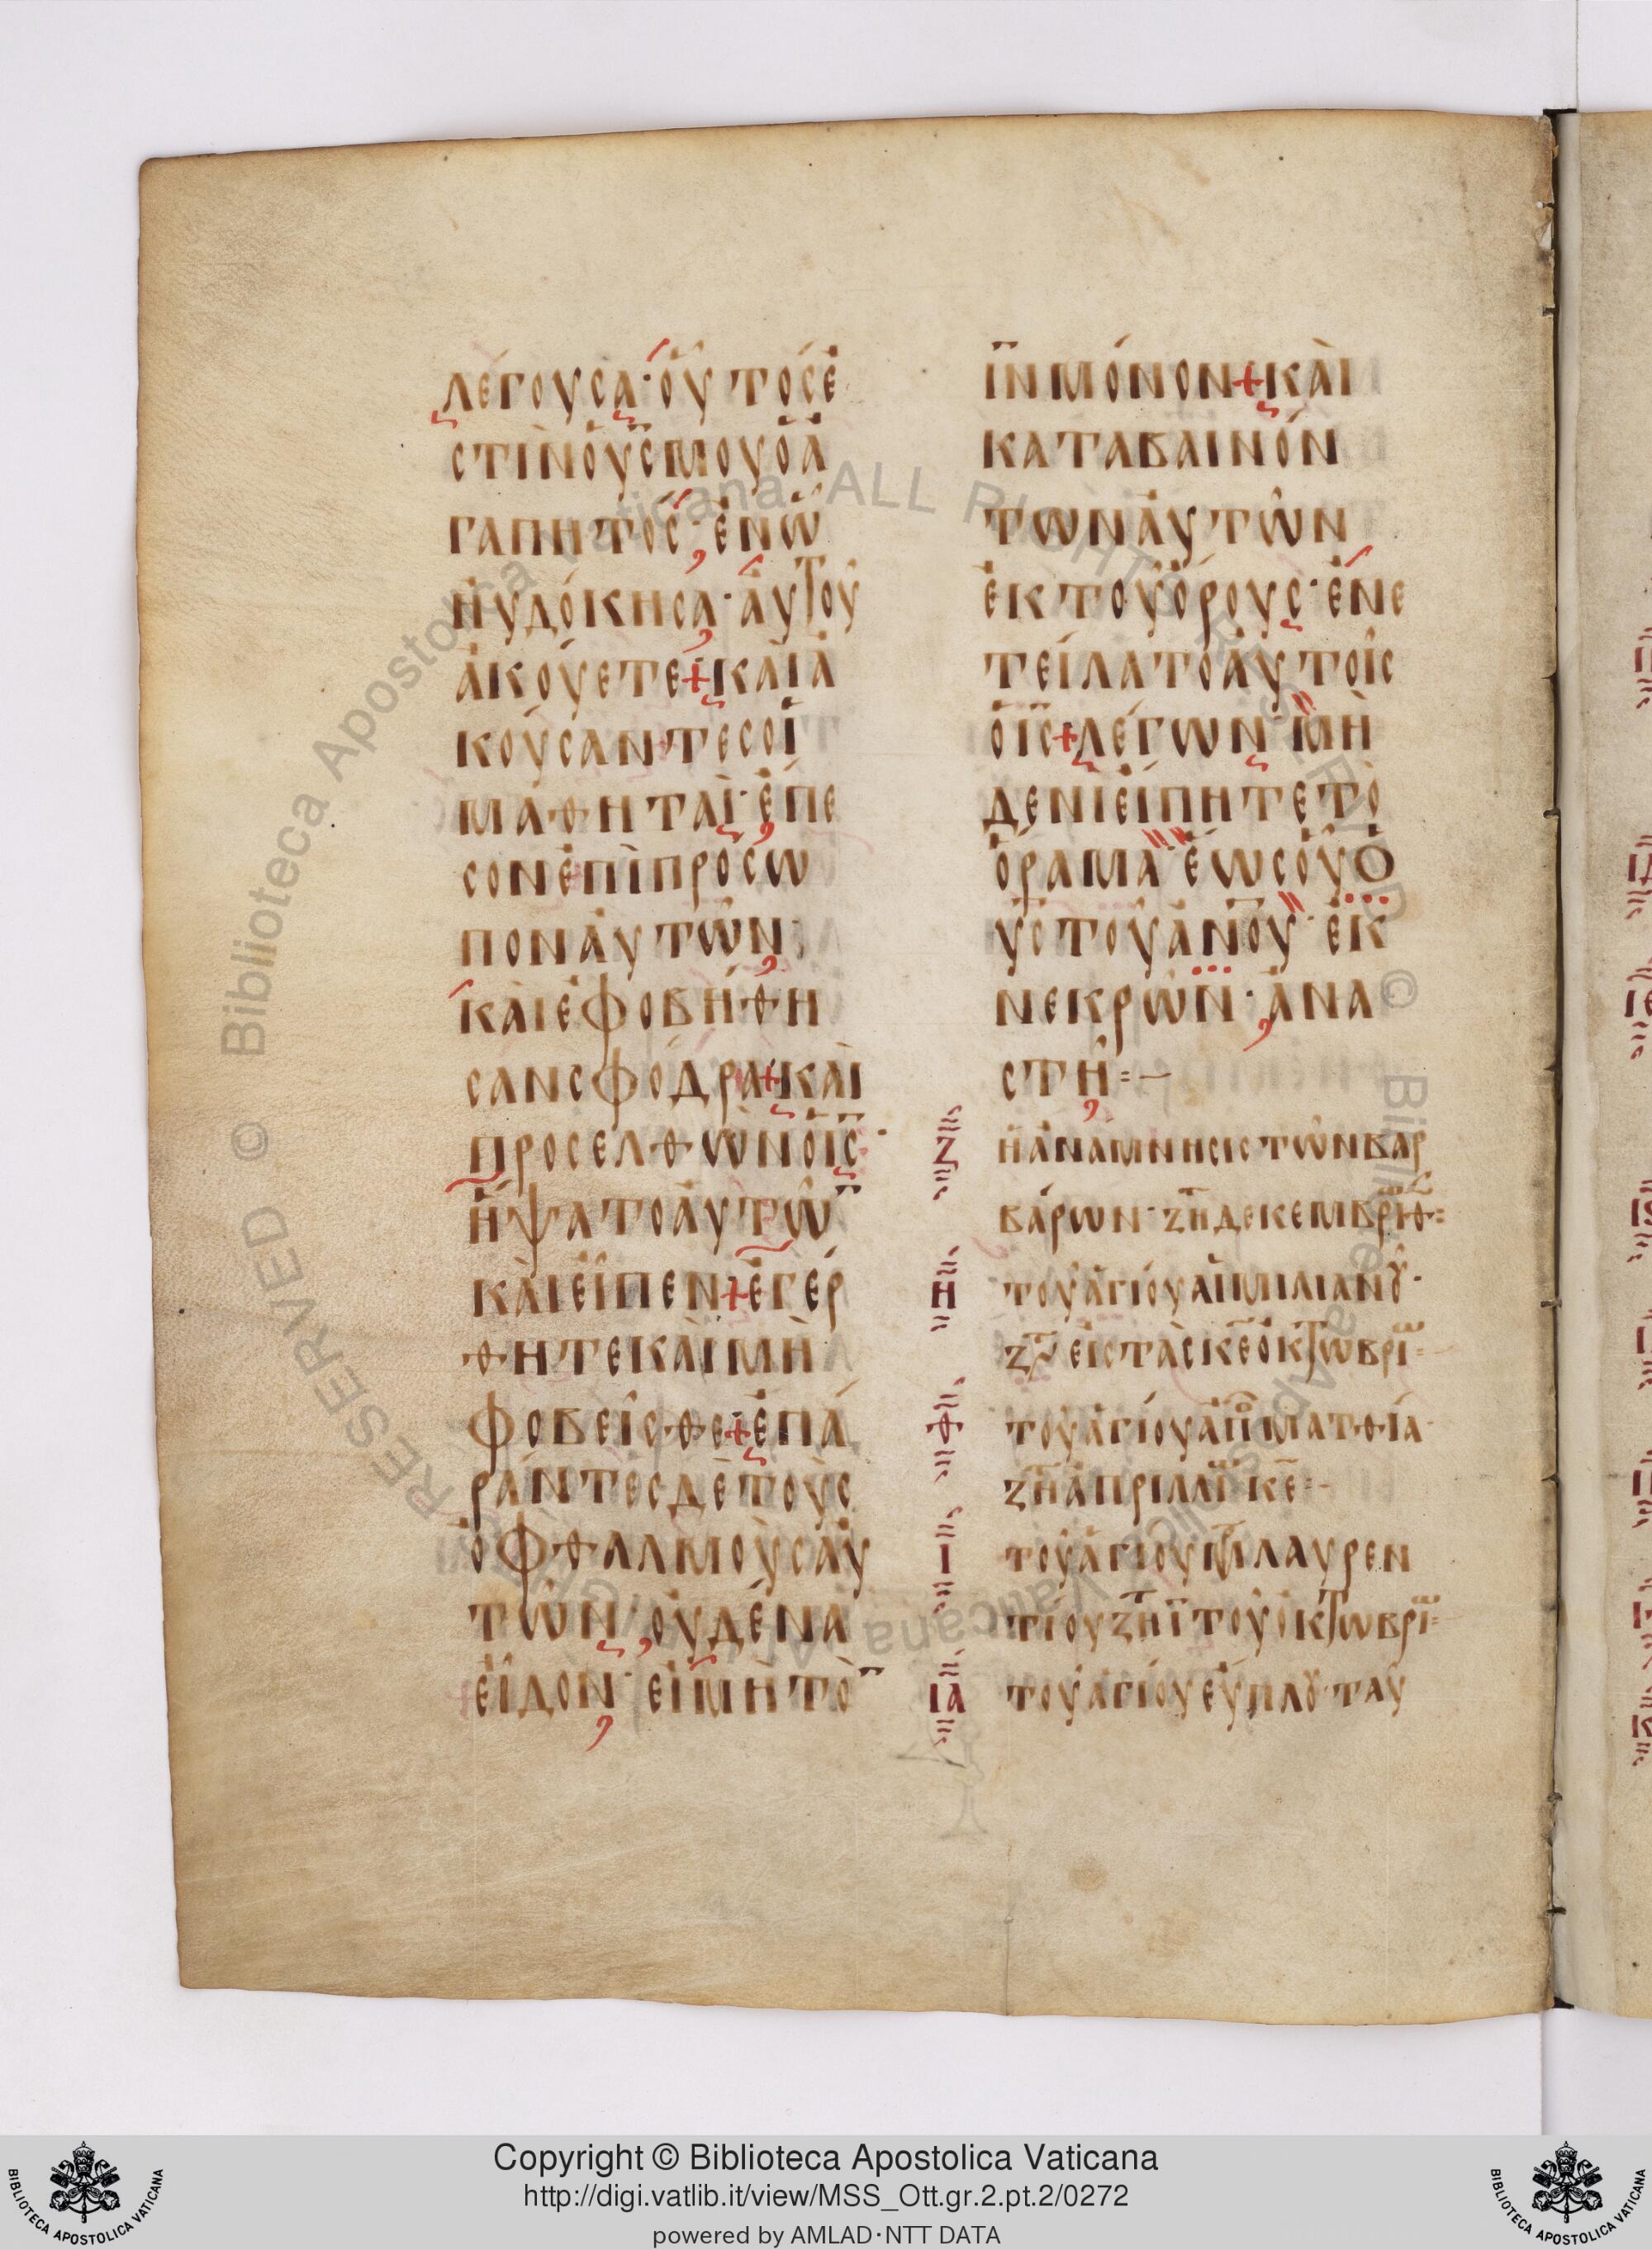 λέγουσα· οὗτός ἐ
στιν ὁ ὑ̅ς̅ μου ὁ ἀ
γαπητός· ἐν ᾧ
ηὐδόκησα· αὐτοῦ
ἀκούετε + καὶ ἀ
κούσαντες οἱ
μαθηταὶ· ἔπε
σον ἐπὶ πρόσω
πον αὐτῶν·
καὶ ἐφοβήθη
σαν σφόδρα + καὶ
προσελθὼν ὁ ι̅ς̅·
ἥψατο αὐτῶ̅
καὶ εἶπεν + ἐγέρ
θητε καὶ μὴ
φοβεῖσθε + ἐπά
ραντες δὲ τοὺς
ὀφθαλμοὺς αὐ
τῶν, οὐδένα
εἶδον· εἰ μὴ τὸ̅
ι̅ν̅ μόνον + καὶ
καταβαινόν
των αὐτῶν
ἐκ τοῦ ὄρους· ἐνε
τείλατο αὐτοῖς
ὁ ι̅ς̅ + λέγων· μὴ
δενὶ εἴπητε τὸ
ὅραμα· ἕως οὗ ὁ
υ̅ς̅ τοῦ α̅ν̅ο̅υ̅· ἐκ
νεκρῶν· ἀνα
στῇ =–
Ζ ἡ ἀνάμνησις τῶν βαρ
βάρων· ζη δεκεμβρ ιθ =
Η τοῦ ἁγίου αἰμιλιανȣ·
εἰς τὰς κε ὀκτωβρι =
Θ τοῦ ἁγίου ματθία·
ζη ἀπριλλι κε =–
Ι τοῦ ἁγίου λαυρεν
τίου ζη ι τοῦ ὀκτωβρι =
ΙΑ τοῦ ἁγίου εὔπλȣ· ταυ
Copyright © Biblioteca Apostolica Vaticana
http://digi.vatlib.it/view/MSS_Ott.gr.2.pt.2/0272
powered by AMLAD·NTT DATA
BIBLIOTECA APOSTOLICA VATICANA
BIBLIOTECA APOSTOLICA VATICANA